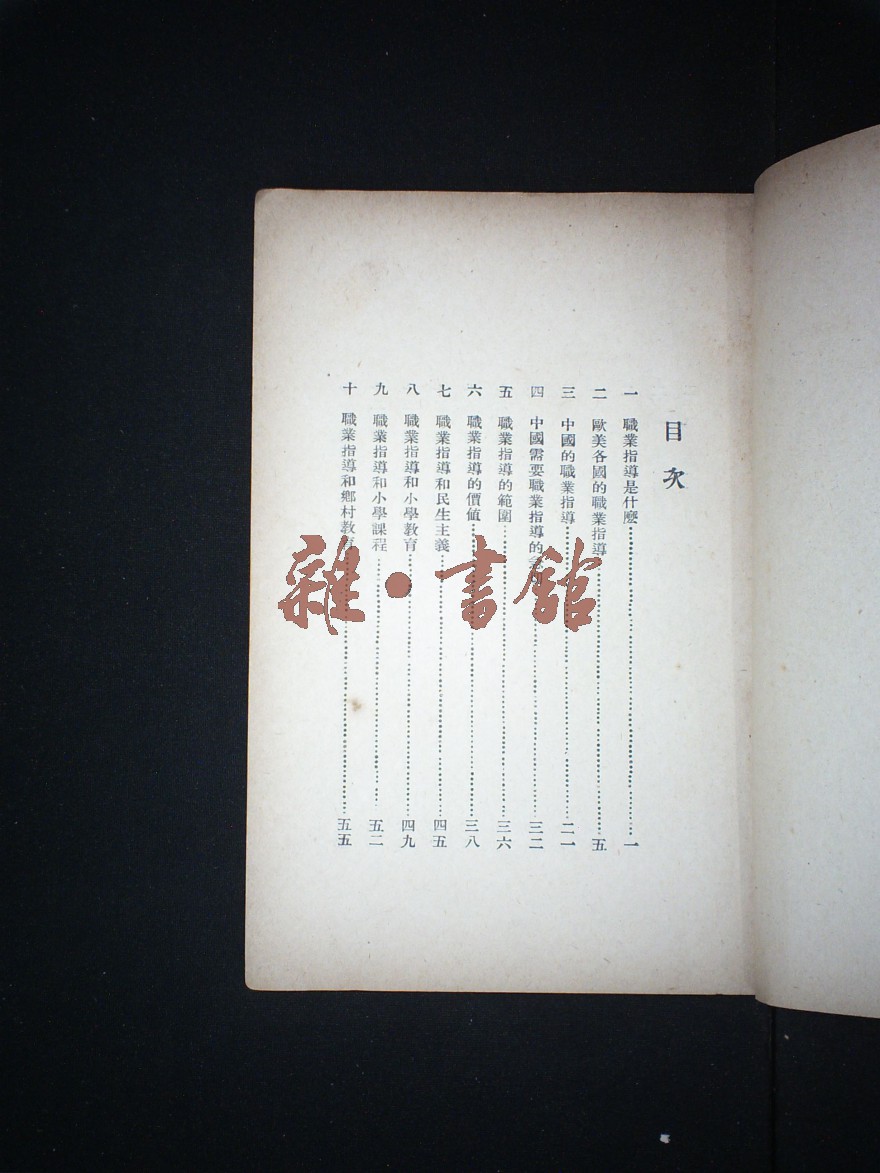 目次
一 職業指導是什麼……一
二 歐美各國的職業指導……五
三 中國的職業指導……二一
四 中國需要職業指導的……三二
五 職業指導的範圍……三六
六 職業指導的價值……三八
七 職業指導和民生主義……四五
八 職業指導和小學教育……四九
九 職業指導和小學課程……五二
十 職業指導和鄉村教育……五五
雜·書館